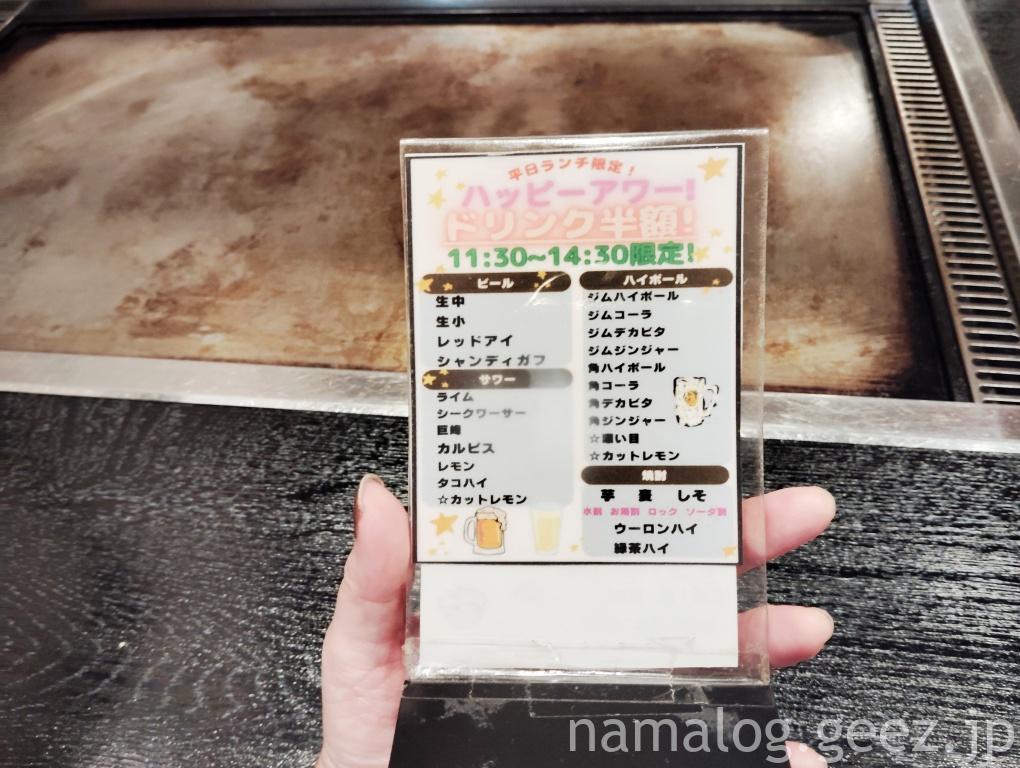 平日ランチ限定!
ハッピーアワー!
ドリンク半額!
11:30~14:30限定!
ビール
生中
生小
レッドアイ
シャンディガフ
サワー
ライム
シークワーサー
巨峰
カルピス
レモン
タコハイ
☆カットレモン
ハイボール
ジムハイボール
ジムコーラ
ジムデカビタ
ジムジンジャー
角ハイボール
角コーラ
角デカビタ
角ジンジャー
☆濃い目
☆カットレモン
焼酎
芋 麦 しそ
水割 お湯割 ロック ソーダ割
ウーロンハイ
緑茶ハイ
namalog.geez.jp